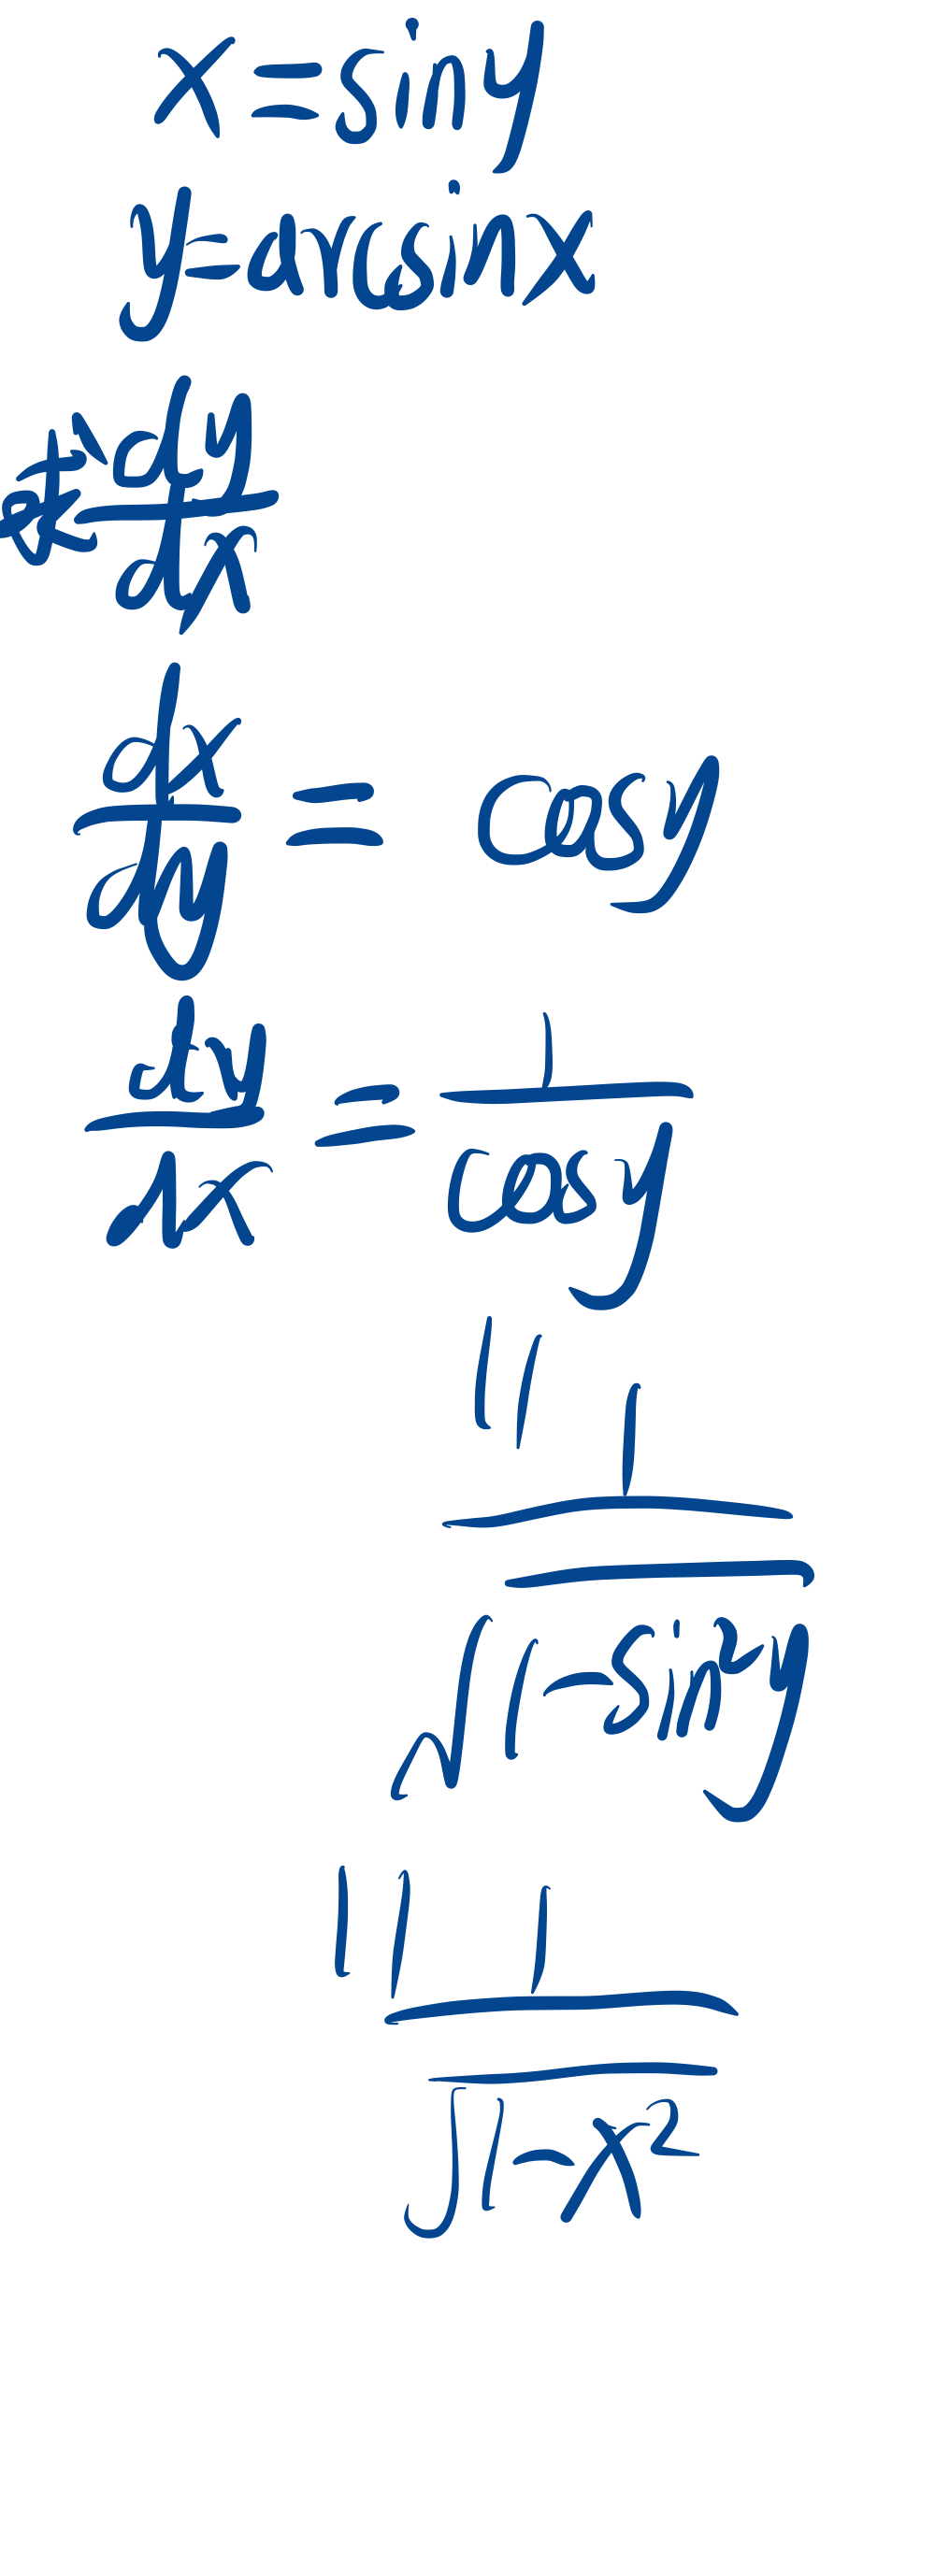 x=siny
y=arcsinx
求dy/dx
dx/dy = cosy
dy/dx = 1/cosy
= 1/√(1-sin²y)
= 1/√(1-x²)